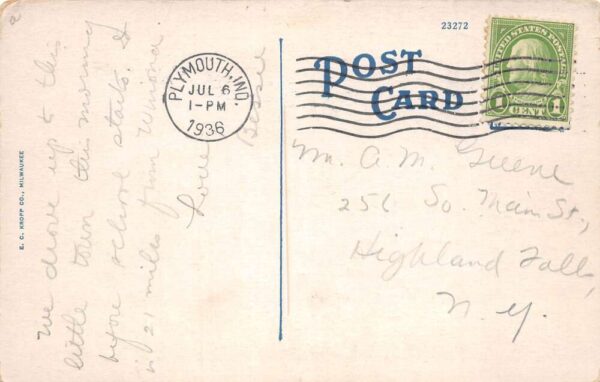 a
23272
POST
CARD
UNITED STATES POSTAGE
1 CENT 1
PLYMOUTH, IND.
JUL 6
1-PM
1936
E. C. KROPP CO., MILWAUKEE
We drove up to this
little town this morning
before school starts. It
is 21 miles from Winona.
Love
Bessie
Mr. A. M. Greene
256 So. Main St.,
Highland Falls,
N. Y.